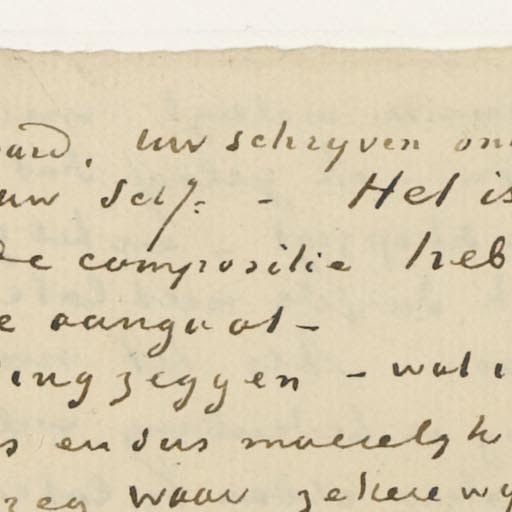 aard, Uw schryven on
uw Sery: - Het is
de compositie heb
e aangaat -
ing zeggen - wat i
s en dus moeielyk
zeg waar zekere wy